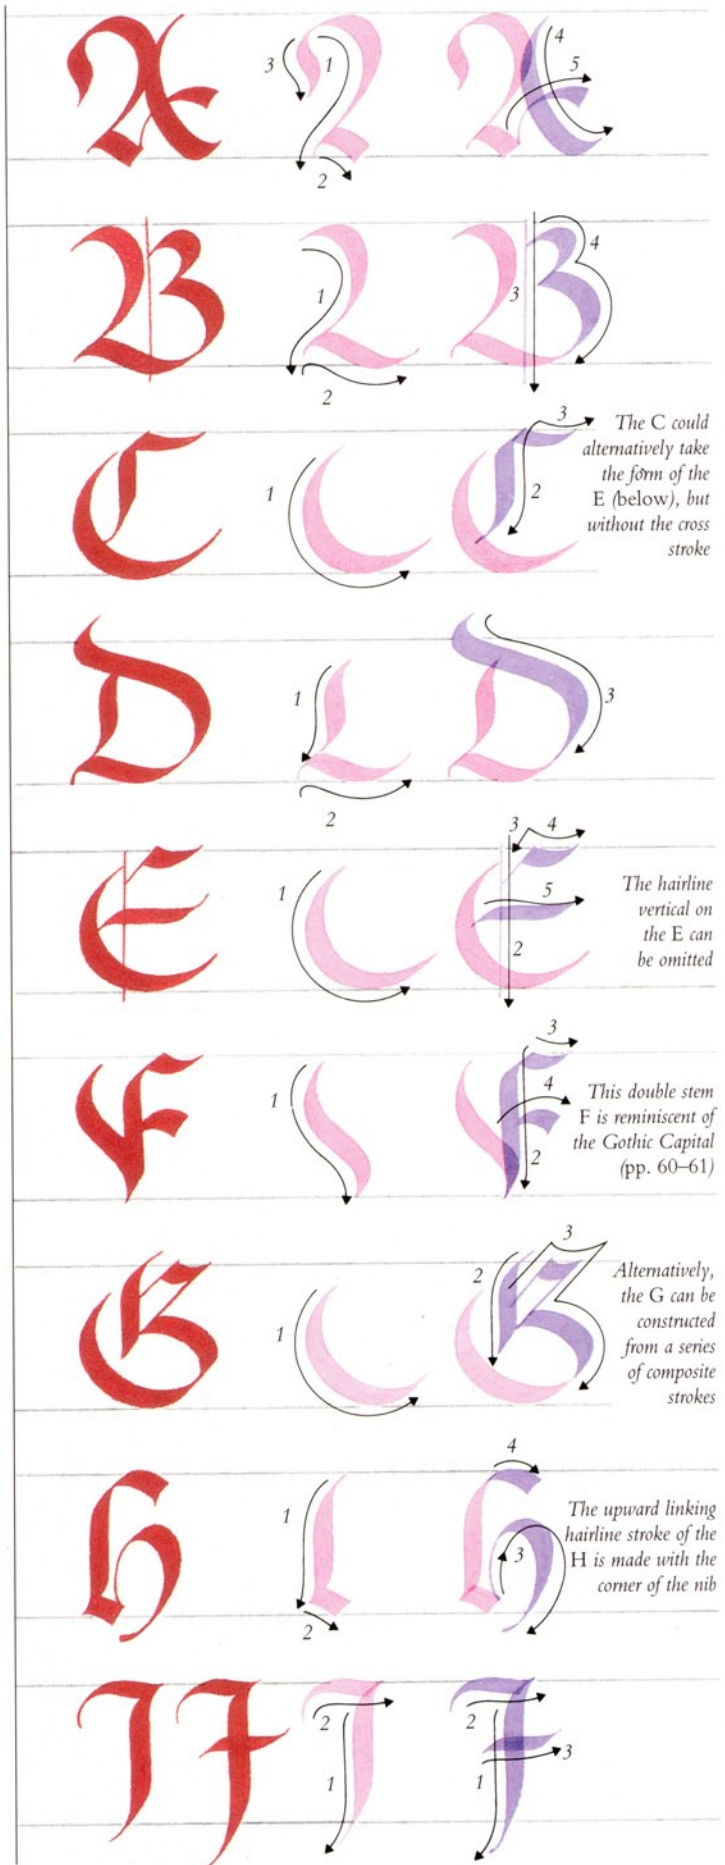 A 3 1 2 4 5
B 1 2 3 4
C 1 2 3
The C could
alternatively take
the form of the
E (below), but
without the cross
stroke
D 1 2 3
E 1 3 4 5 2
The hairline
vertical on
the E can
be omitted
F 1 3 4 2
This double stem
F is reminiscent of
the Gothic Capital
(pp. 60–61)
G 1 2 3
Alternatively,
the G can be
constructed
from a series
of composite
strokes
H 1 2 4 3
The upward linking
hairline stroke of the
H is made with the
corner of the nib
I J 2 1 2 3 1